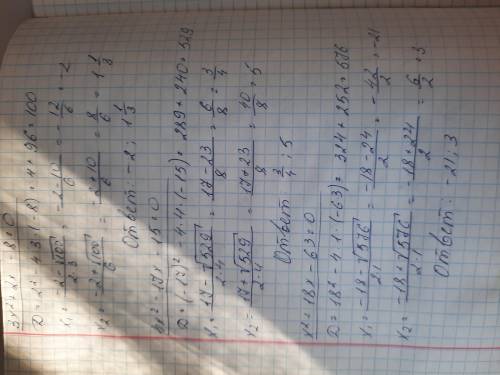 3x²+2x-8=0
D=2²-4·3·(-8)=4+96=100
x₁=(-2-√100)/(2·3)=(-2-10)/6=-12/6=-2
x₂=(-2+√100)/6=(-2+10)/6=8/6=1 1/3
Ответ: -2; 1 1/3
4x²-17x-15=0
D=(-17)²-4·4·(-15)=289+240=529
x₁=(17-√529)/(2·4)=(17-23)/8=6/8=3/4
x₂=(17+√529)/(2·4)=(17+23)/8=40/8=5
Ответ: 3/4; 5
x²+18x-63=0
D=18²-4·1·(-63)=324+252=576
x₁=(-18-√576)/(2·1)=(-18-24)/2=-42/2=-21
x₂=(-18+√576)/(2·1)=(-18+24)/2=6/2=3
Ответ: -21; 3